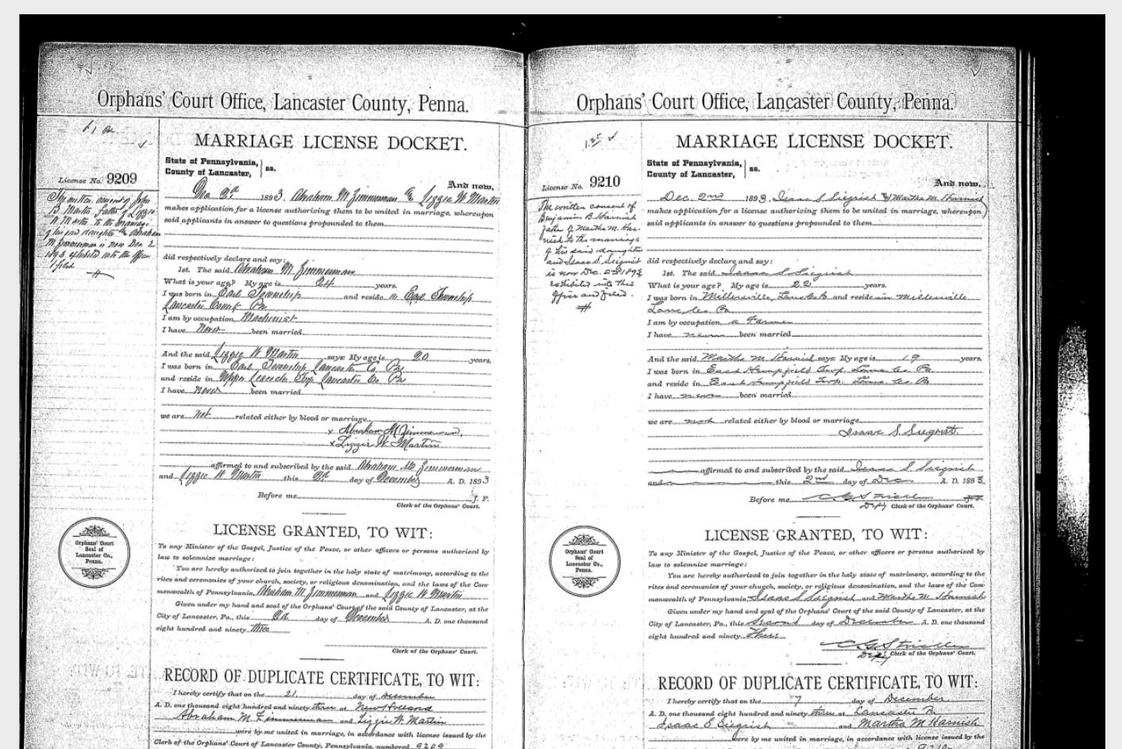 Orphans' Court Office, Lancaster County, Penna.
MARRIAGE LICENSE DOCKET.
State of Pennsylvania,
County of Lancaster, } ss.
License No. 9209
And now,
1893, Abraham M Zimmerman & Lizzie W Martin
makes application for a license authorizing them to be united in marriage, whereupon
said applicants in answer to questions propounded to them
The written consent of John
B Martin father of Lizzie
W Martin to the marriage
of his said daughter to Abraham
M Zimmerman is now Dec 2
1893 exhibited into the office
& filed.
did respectively declare and say:
1st. The said Abraham M Zimmerman
What is your age? My age is 24 years.
I was born in Earl Township and reside in Township
Lancaster County Pa
I am by occupation Machinist
I have Never been married.
And the said Lizzie W Martin says: My age is 20 years.
I was born in Earl Township Lancaster Co. Pa
and reside in Upper Leacock Twp Lancaster Co Pa
I have never been married.
we are not related either by blood or marriage
x Abraham M Zimmerman
x Lizzie W Martin
affirmed to and subscribed by the said Abraham M Zimmerman
and Lizzie W Martin this day of December A. D. 1893
Before me J. P.
Clerk of the Orphans' Court.
Orphans' Court
Seal of
Lancaster Co.,
Penna.
LICENSE GRANTED, TO WIT:
To any Minister of the Gospel, Justice of the Peace, or other officers or persons authorized by
law to solemnize marriage:
You are hereby authorized to join together in the holy state of matrimony, according to the
rites and ceremonies of your church, society, or religious denomination, and the laws of the Com-
monwealth of Pennsylvania, Abraham M. Zimmerman and Lizzie W Martin
Given under my hand and seal of the Orphans' Court of the said County of Lancaster, at the
City of Lancaster, Pa., this day of December A. D. one thousand
eight hundred and ninety three
Clerk of the Orphans' Court.
RECORD OF DUPLICATE CERTIFICATE, TO WIT:
I hereby certify that on the 21 day of December
A. D. one thousand eight hundred and ninety three at New Holland
Abraham M Zimmerman and Lizzie W. Martin
were by me united in marriage, in accordance with license issued by the
Clerk of Orphans' Court of Lancaster County, Pennsylvania, numbered 9209
Orphans' Court Office, Lancaster County, Penna.
MARRIAGE LICENSE DOCKET.
State of Pennsylvania,
County of Lancaster, } ss.
License No. 9210
And now,
Dec. 2nd 1893, Isaac S Siegrist & Martha M Harnish
makes application for a license authorizing them to be united in marriage, whereupon
said applicants in answer to questions propounded to them
The written consent of
Benjamin B Harnish
father of Martha M. Har-
nish to the marriage
of his said daughter
and Isaac S Siegrist
is now Dec. 2nd 1893
exhibited into this
Office and filed.
did respectively declare and say:
1st. The said Isaac S Siegrist
What is your age? My age is 22 years.
I was born in Millersville, Lanc Co and reside in Millersville
Lanc Co Pa.
I am by occupation a Farmer
I have never been married
And the said Martha M Harnish says: My age is 19 years.
I was born in East Hempfield Twp. Lanc Co. Pa
and reside in East Hempfield Twp. Lanc Co. Pa
I have never been married.
we are not related either by blood or marriage
Isaac S Siegrist.
affirmed to and subscribed by the said Isaac S Siegrist
and this 2nd day of Dec A. D. 1893
Before me
Clerk of the Orphans' Court.
Orphans' Court
Seal of
Lancaster Co.,
Penna.
LICENSE GRANTED, TO WIT:
To any Minister of the Gospel, Justice of the Peace, or other officers or persons authorized by
law to solemnize marriage:
You are hereby authorized to join together in the holy state of matrimony, according to the
rites and ceremonies of your church, society, or religious denomination, and the laws of the Com-
monwealth of Pennsylvania, Isaac S Siegrist and Martha M Harnish
Given under my hand and seal of the Orphans' Court of the said County of Lancaster, at the
City of Lancaster, Pa., this Second day of December A. D. one thousand
eight hundred and ninety Three
Clerk of the Orphans' Court.
RECORD OF DUPLICATE CERTIFICATE, TO WIT:
I hereby certify that on the 7 day of December
A. D. one thousand eight hundred and ninety three at Lancaster Pa
Isaac S Siegrist and Martha M Harnish
were by me united in marriage, in accordance with license issued by the
Clerk of Orphans' Court of Lancaster County, Pennsylvania, numbered 9210